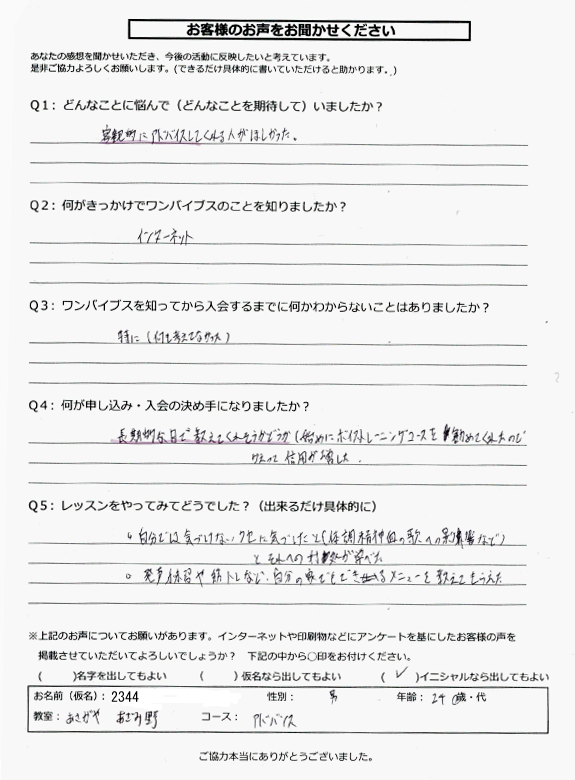 お客様のお声をお聞かせください
あなたの感想を聞かせいただき、今後の活動に反映したいと考えています。
是非ご協力よろしくお願いします。(できるだけ具体的に書いていただけると助かります。)
Q1：どんなことに悩んで（どんなことを期待して）いましたか？
客観的にアドバイスしてくれる人がほしかった。
Q2：何がきっかけでワンバイブスのことを知りましたか？
インターネット
Q3：ワンバイブスを知ってから入会するまでに何かわからないことはありましたか？
特に（何も考えてなかった）
Q4：何が申し込み・入会の決め手になりましたか？
長期的な目で教えてくれそうかどうか（始めにボイストレーニングコースを勧めてくれたので
信用が増した
Q5：レッスンをやってみてどうでした？（出来るだけ具体的に）
自分では気づけないクセに気づけたこと（体調 精神面の歌への影響など）
とそれへの対処が学べた
○ 発声練習や筋トレなど、自分の家でもできるメニューを教えてもらえた
※上記のお声についてお願いがあります。インターネットや印刷物などにアンケートを基にしたお客様の声を
掲載させていただいてよろしいでしょうか？ 下記の中から○印をお付けください。
（　　）名字を出してもよい　（　　）仮名なら出してもよい　（ ✓ ）イニシャルなら出してもよい
お名前（仮名）：2344　性別：男　年齢：24 歳・代
教室：あさがや あざみ野　コース：アドバンス
ご協力本当にありがとうございました。